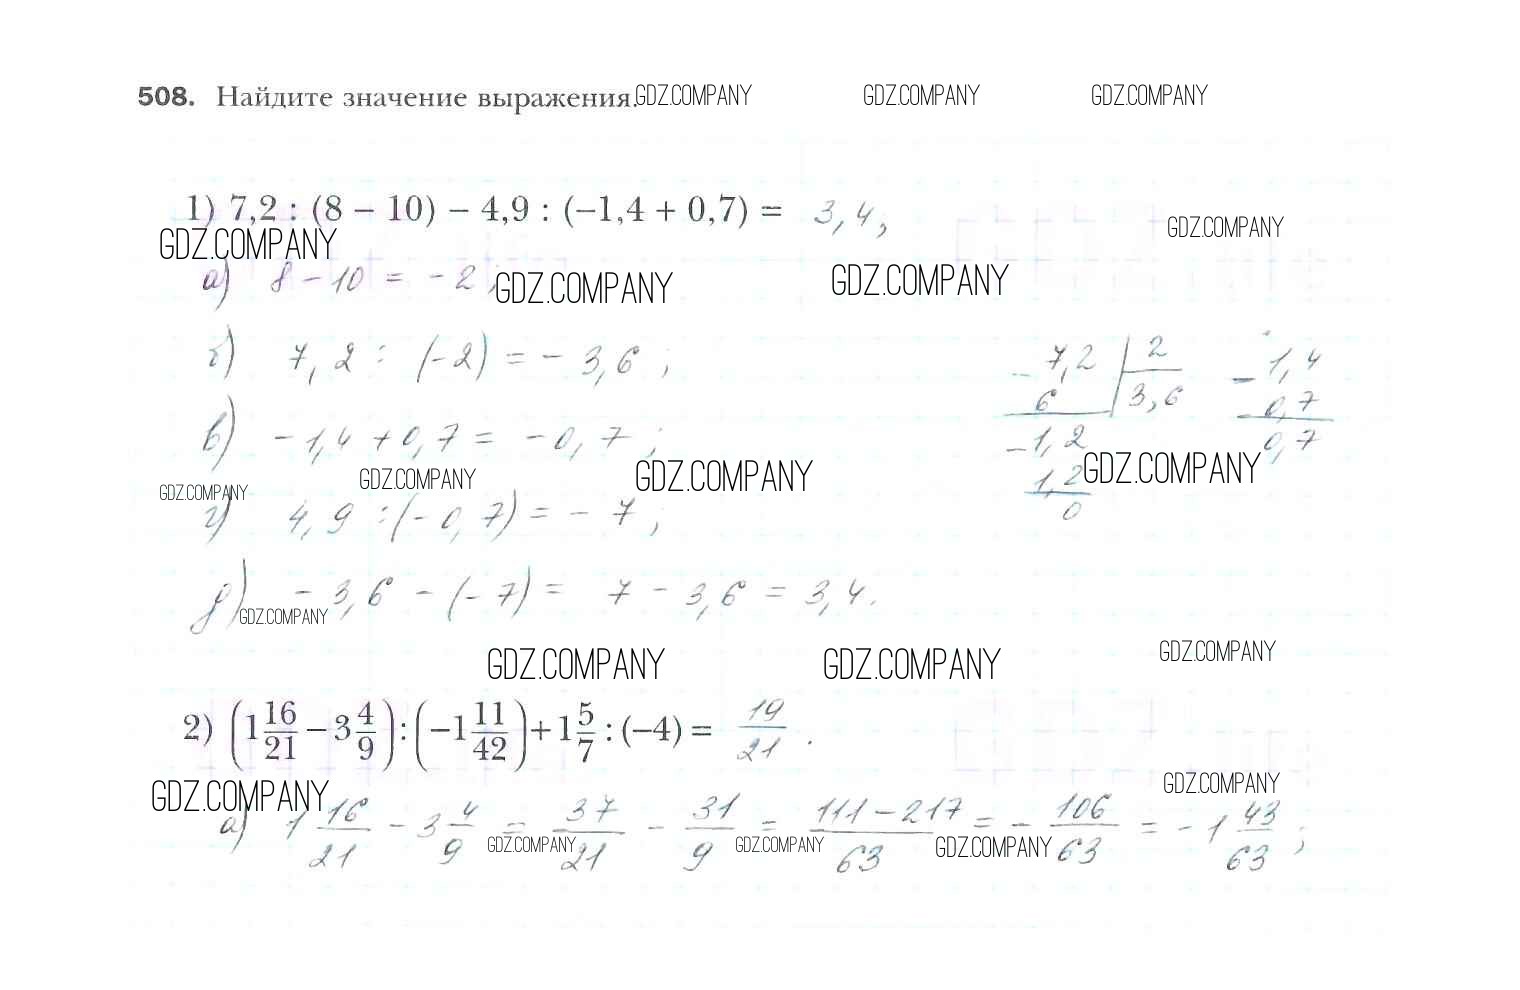 508. Найдите значение выражения. GDZ.COMPANY GDZ.COMPANY GDZ.COMPANY
1) 7,2 : (8 − 10) − 4,9 : (−1,4 + 0,7) = 3,4;
GDZ.COMPANY GDZ.COMPANY
а) 8 − 10 = −2; GDZ.COMPANY GDZ.COMPANY
б) 7,2 : (−2) = −3,6; − 7,2 | 2 − 1,4
6 3,6 0,7
в) −1,4 + 0,7 = −0,7; − 1,2 0,7
GDZ.COMPANY GDZ.COMPANY GDZ.COMPANY 1,2 GDZ.COMPANY
г) 4,9 : (−0,7) = −7; 0
д) −3,6 − (−7) = 7 − 3,6 = 3,4.
GDZ.COMPANY
GDZ.COMPANY GDZ.COMPANY GDZ.COMPANY
2) (1 16/21 − 3 4/9) : (−1 11/42) + 1 5/7 : (−4) = 19/21.
GDZ.COMPANY GDZ.COMPANY
а) 1 16/21 − 3 4/9 = 37/21 − 31/9 = (111 − 217)/63 = −106/63 = −1 43/63;
GDZ.COMPANY GDZ.COMPANY GDZ.COMPANY